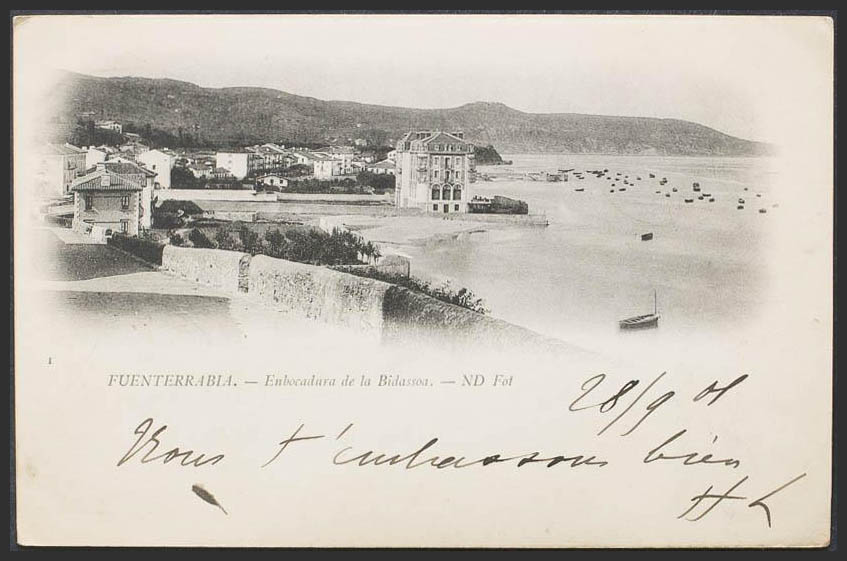 1
FUENTERRABIA. — Enbocadura de la Bidassoa. — ND Fot
28/9 01
Nous t'embrassons bien
H L